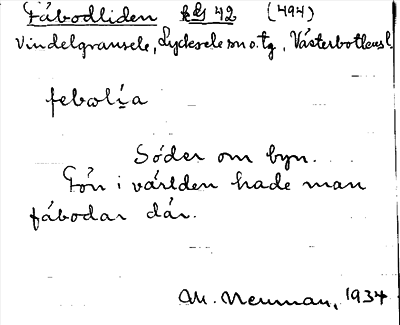 Fäbodliden 42 (494)
Vindelgransele, Lycksele sn o. tg, Västerbottens l.
febolía
Söder om byn.
Förr i världen hade man
fäbodar där.
M. Neuman, 1934